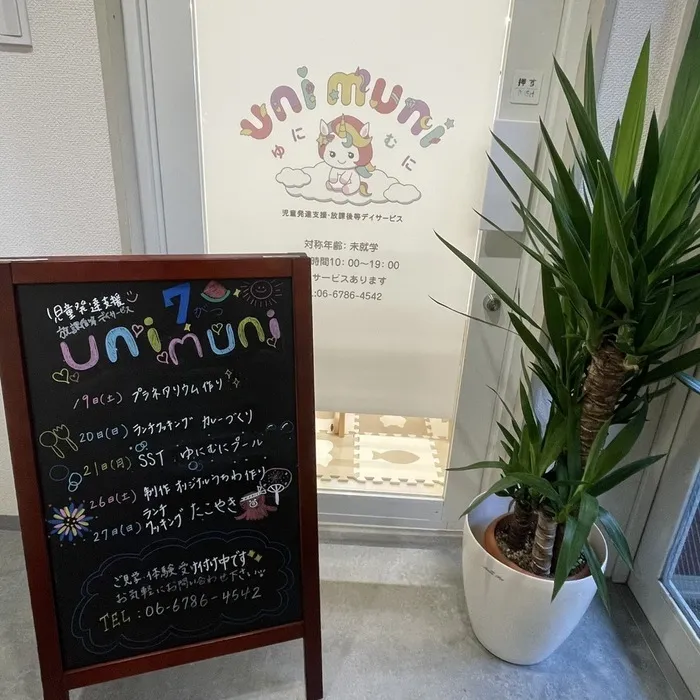 unimuni
ゆにむに
児童発達支援・放課後等デイサービス
対称年齢：未就学
時間10：00～19：00
サービスあります
:06-6786-4542
押す
児童発達支援
放課後等デイサービス
7がつ
unimuni
19日(土) プラネタリウム作り
20日(日) ランチクッキング カレーづくり
21日(月) SST ゆにむにプール
26日(土) 制作 オリジナルうちわ作り
27日(日) ランチクッキング たこやき
ご見学、体験受け付け中です
お気軽にお問い合わせ下さい
TEL：06-6786-4542